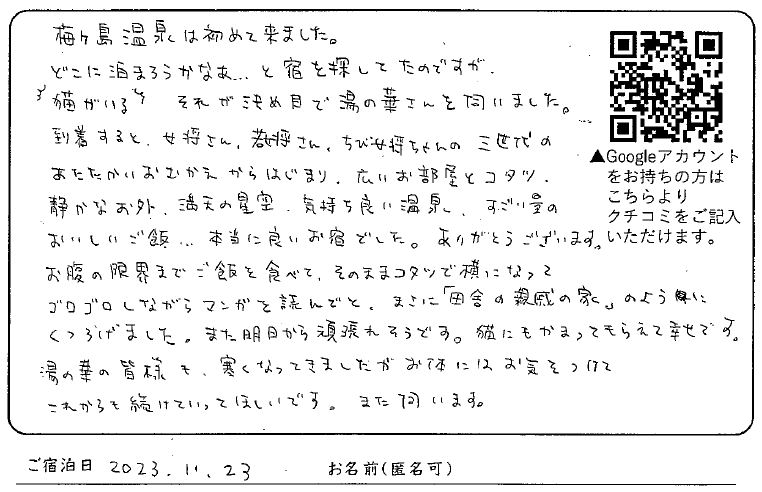 梅ヶ島温泉は初めて来ました。
どこに泊まろうかなぁ…と宿を探してたのですが、
"猫がいる" それが決め目で湯の華さんを伺いました。
到着すると、女将さん、若女将さん、ちび女将ちゃんの三世代の
あたたかいおむかえからはじまり、広いお部屋とコタツ、
静かなお外、満天の星空、気持ち良い温泉、すごい量の
おいしいご飯…本当に良いお宿でした。ありがとうございます。
お腹の限界までご飯を食べて、そのままコタツで横になって
ゴロゴロしながらマンガを読んでと、まさに「田舎の親戚の家」のように
くつろげました。また明日から頑張れそうです。猫にもかまってもらえて幸せです。
湯の華の皆様も、寒くなってきましたがお体にはお気をつけて
これからも続けていってほしいです。また伺います。
▲Googleアカウント
をお持ちの方は
こちらより
クチコミをご記入
いただけます。
ご宿泊日 2023.11.23 お名前(匿名可)